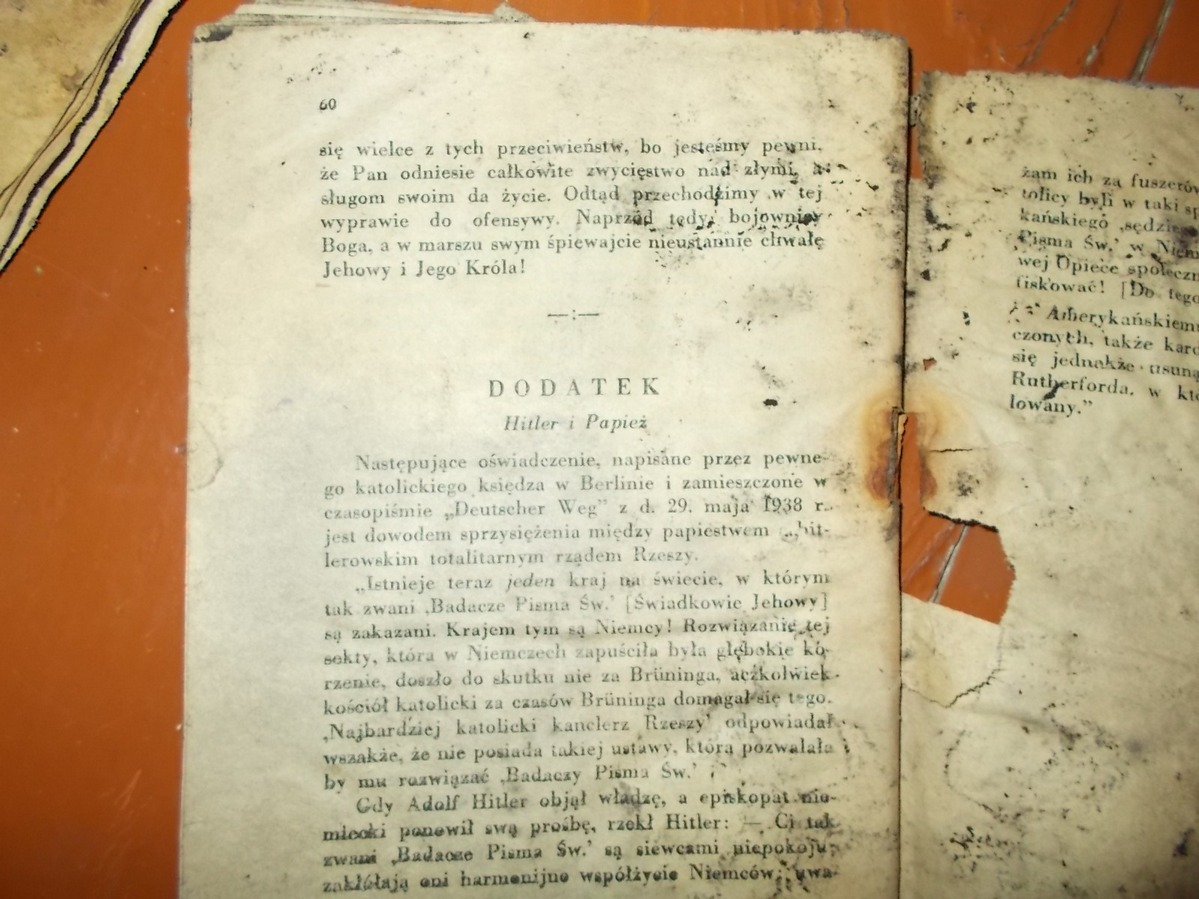 60
się wielce z tych przeciwieństw, bo jesteśmy pewni,
że Pan odniesie całkowite zwycięstwo nad złymi, a
sługom swoim da życie. Odtąd przechodzimy w tej
wyprawie do ofensywy. Naprzód tedy, bojownicy
Boga, a w marszu swym śpiewajcie nieustannie chwałę
Jehowy i Jego Króla!
—:—
DODATEK
Hitler i Papież
Następujące oświadczenie, napisane przez pewne-
go katolickiego księdza w Berlinie i zamieszczone w
czasopiśmie „Deutscher Weg” z d. 29. maja 1938 r.
jest dowodem sprzysiężenia między papiestwem a hit-
lerowskim totalitarnym rządem Rzeszy.
„Istnieje teraz jeden kraj na świecie, w którym
tak zwani ‚Badacze Pisma Św.’ [Świadkowie Jehowy]
są zakazani. Krajem tym są Niemcy! Rozwiązanie tej
sekty, która w Niemczech zapuściła była głębokie ko-
rzenie, doszło do skutku nie za Brüninga, aczkolwiek
kościół katolicki za czasów Brüninga domagał się tego.
‚Najbardziej katolicki kanclerz Rzeszy’ odpowiadał
wszakże, że nie posiada takiej ustawy, która pozwalała
by mu rozwiązać ‚Badaczy Pisma Św.’
Gdy Adolf Hitler objął władzę, a episkopat nie-
miecki ponowił swą prośbę, rzekł Hitler: — Ci tak
zwani ‚Badacze Pisma Św.’ są siewcami niepokoju;
zakłócają oni harmonijne współżycie Niemców; uwa-
żam ich za fuszerów
tolicy byli w taki sp
kańskiego ‚sędzie
Pisma Św.’ w Niem
wej Opiece społeczn
fiskować! [Do tego
Amerykańskiemu
czonych, także kard
się jednakże usuną
Rutherforda, w któ
lowany.”